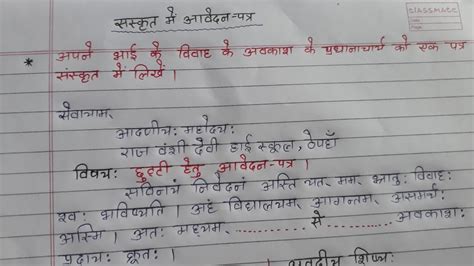 CLASSMATE
Date
Page
संस्कृत में आवेदन-पत्र
* अपने भाई के विवाह के अवकाश के प्रधानाचार्य को एक पत्र
संस्कृत में लिखें।
सेवायाम्,
आदणीयः महोदयः
राज वंशी देवी हाई स्कूल,
विषयः छुट्टी हेतु आवेदन-पत्र।
सविनयं निवेदनं अस्ति यत् मम भ्रातुः विवाहः
श्वः भविष्यति। अहं विद्यालयम् आगन्तम् असमर्थः
अस्मि। अतः मध्यम् .............. से .............. अवकाशः
प्रदाय कृतः।
शिष्यः